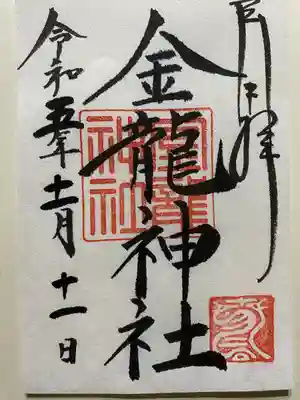 拝
金龍神社
金龍
神社
令和五年十一月十一日